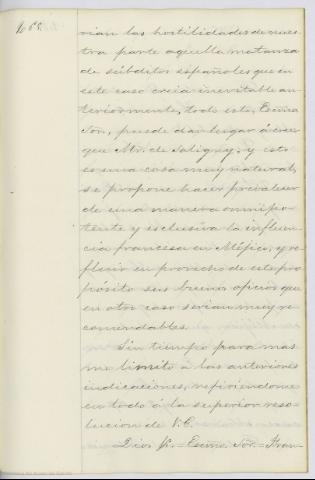 rian las hostilidades de nues-
tra parte aquella matanza
de súbditos españoles que en
este caso creia inevitable an-
teriormente, todo esto, Excmo
Sor, puede dar lugar á creer
que Mr. de Saligny, y esto
es una cosa muy natural,
se propone hacer prevalecer
de una manera omnipo-
tente y esclusiva la influen-
cia francesa en Méjico, y re-
fluir en provecho de este pro-
pósito sus buenos oficios que
en otro caso serian muy re-
comendables.
Sin tiempo para mas
me limito á las anteriores
indicaciones, refiriéndome
en todo á la superior reso-
lucion de V.E.
Dios &. = Excmo. Sor. = Fran-